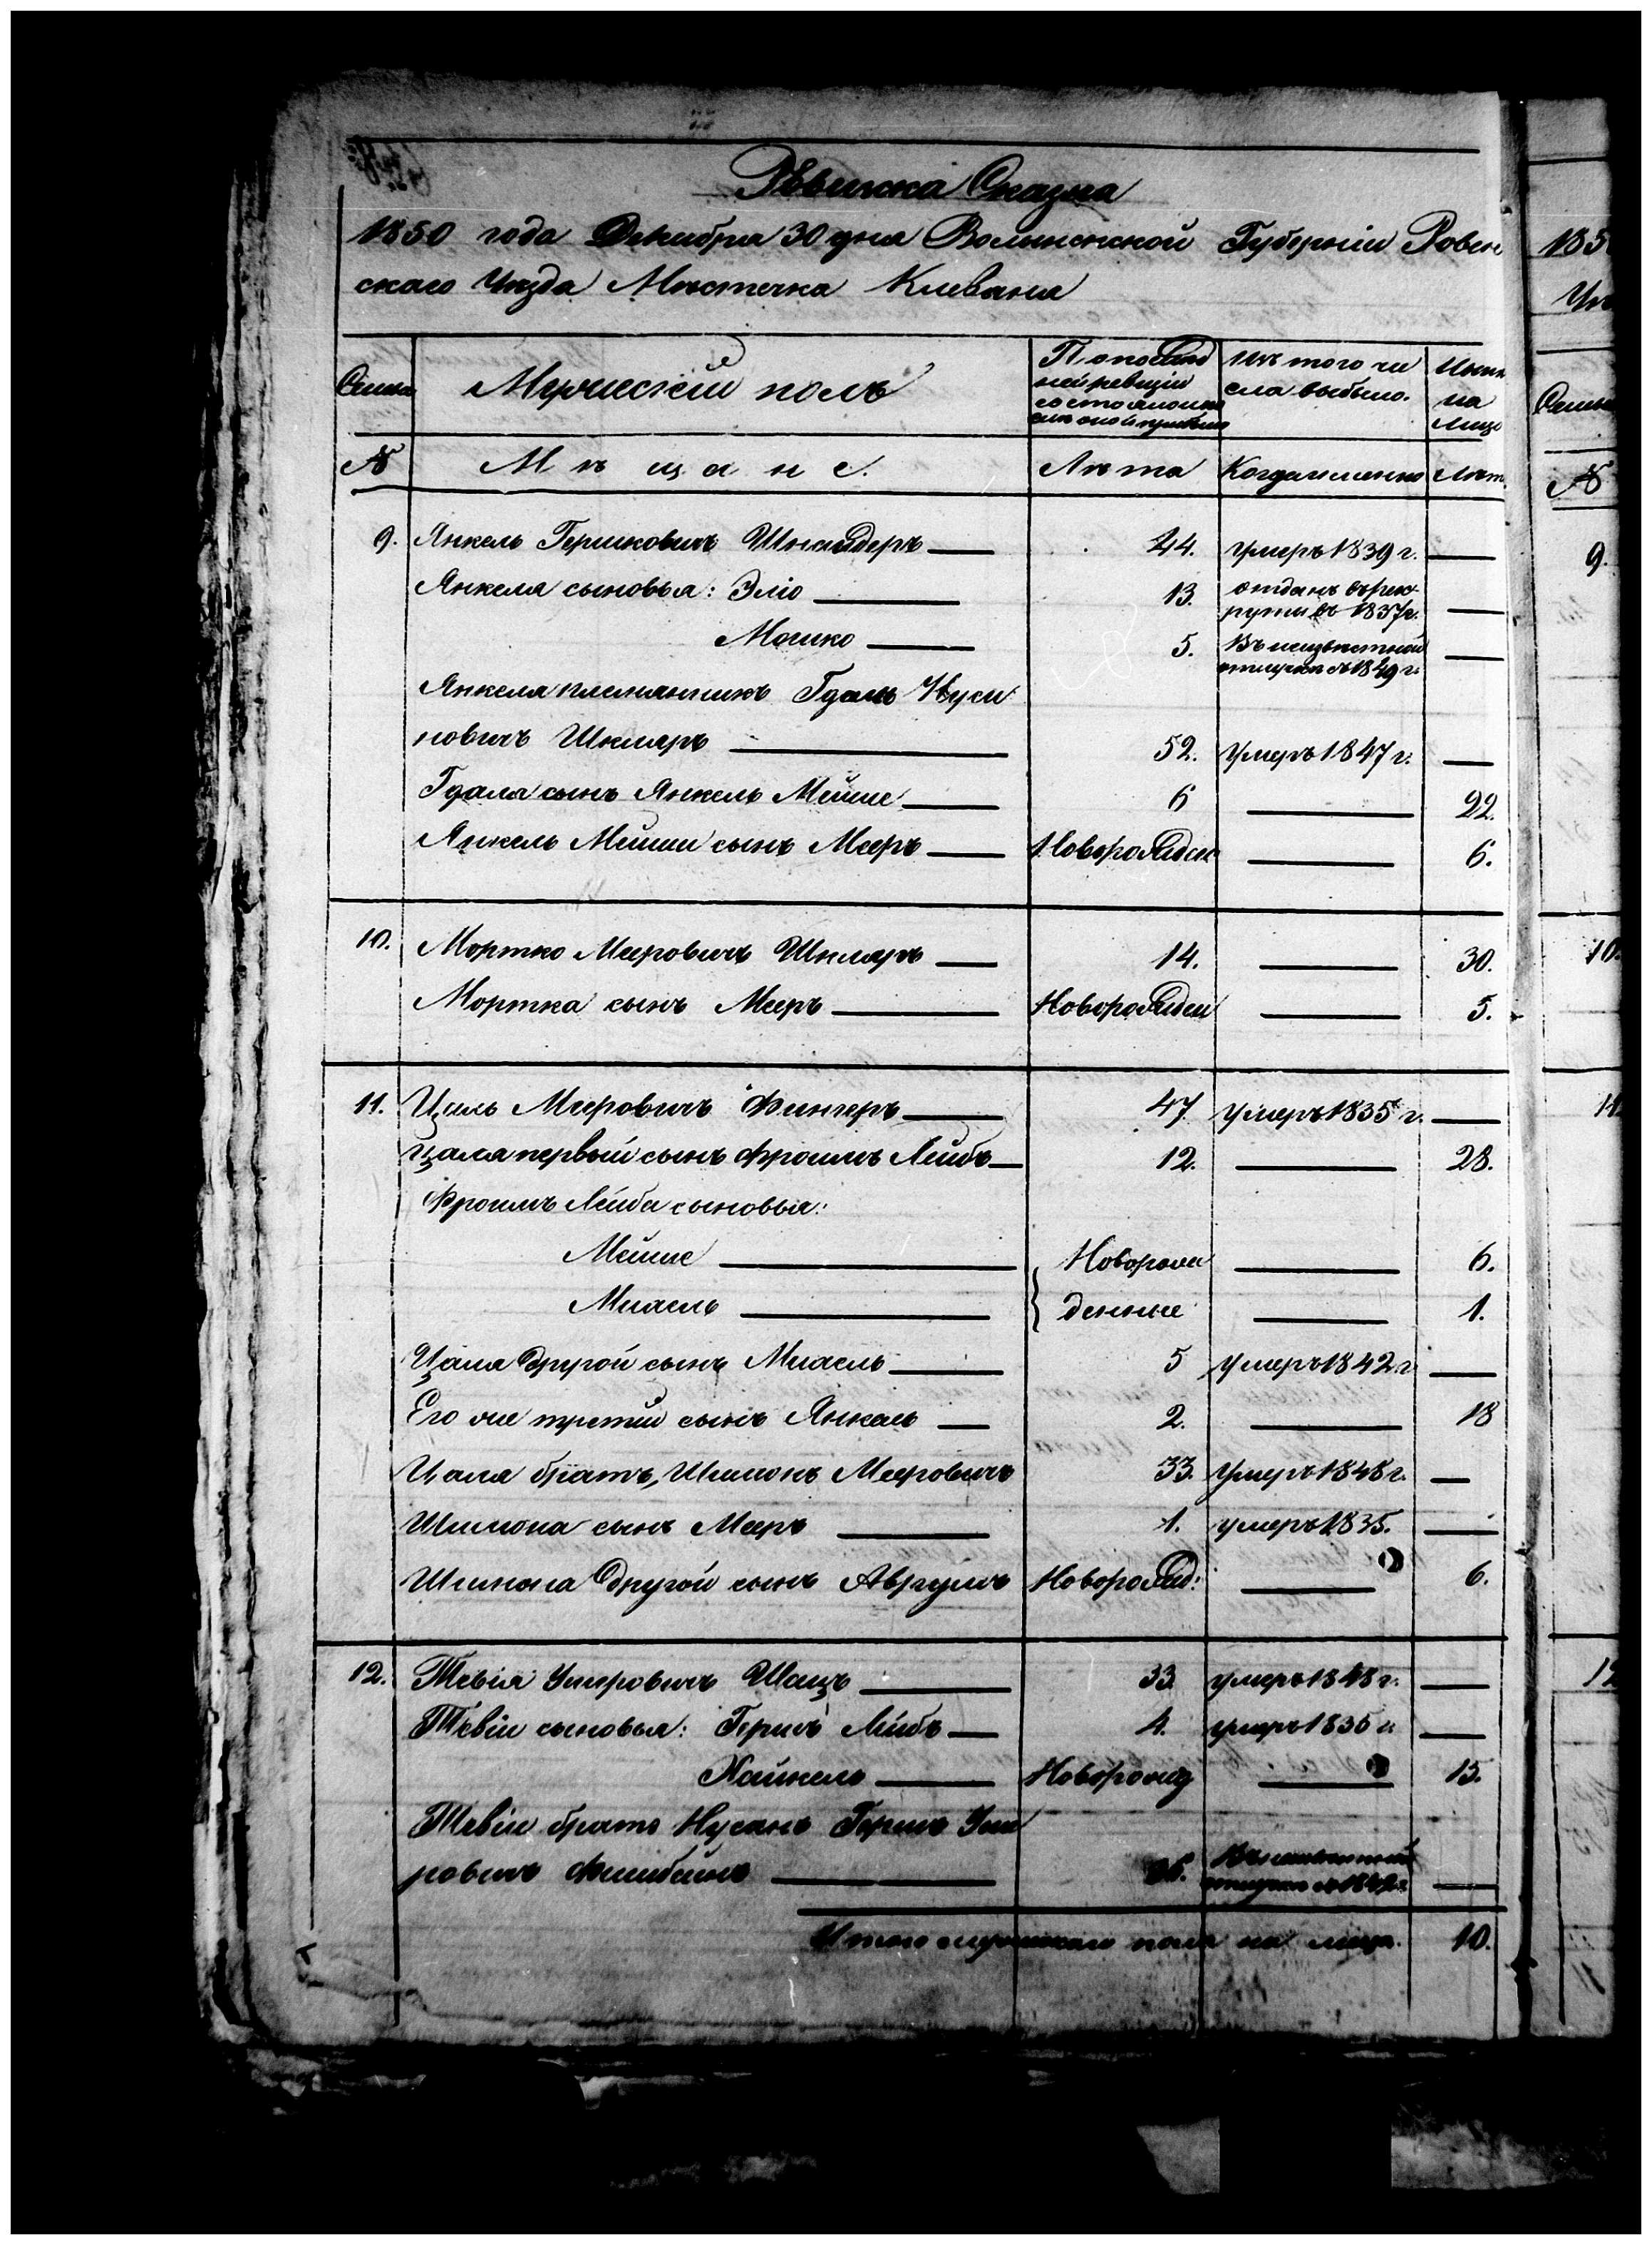 Ревижска Сказка
1850 года Декабря 30 дня Волынской Губерніи Ровен
скаго Уѣзда Мѣстечка Клеваня
Семья
Мужескій полъ
По послѣд
ней ревизіи
состояло и по
Изъ того чи
сла выбыло.
Нынѣ
на
лицо
№
Мѣщане.
Лѣта
Когда именно
Лѣт.
9. Янкель Гершковичъ Шнайдеръ 44. умеръ 1839 г.
Янкеля сыновья: Эліо 13. отданъ въ рек
руты въ 1837 г.
Мошко 5. Въ неизвѣстной
отлучкѣ съ 1849 г.
Янкеля племянникъ Гдаль Нуси
новичъ Шкляръ 52. умеръ 1847 г.
Гдаля сынъ Янкель Мейше 6 22.
Янкель Мейши сынъ Мееръ Новорожден 6.
10. Мортко Мееровичъ Шкляръ 14. 30.
Мортка сынъ Мееръ Новорожден 5.
11. Цаль Мееровичъ Фингеръ 47 умеръ 1835 г.
Цаля первый сынъ Фроимъ Лейбъ 12. 28.
Фроимъ Лейба сыновья:
Мейше Новорож 6.
Михель денные 1.
Цаля другой сынъ Михель 5 умеръ 1842 г
Его же третій сынъ Янкель 2. 18
Цаля братъ, Шимонъ Мееровичъ 33. умеръ 1848 г.
Шимона сынъ Мееръ 1. умеръ 1835.
Шимона другой сынъ Аврумъ Новорожд: 6.
12. Тевія Умеровичъ Шацъ 33. умеръ 1848 г.
Тевіи сыновья: Гершъ Лейбъ 4. умеръ 1835 г.
Хайкель Новорожд 15.
Тевіи братъ Нусанъ Гершъ Уме
ровичъ Фишбейнъ Въ неизвѣстной
отлучкѣ съ 1842 г.
Итого мужескаго пола на лицо. 10.
185
9.
10.
№